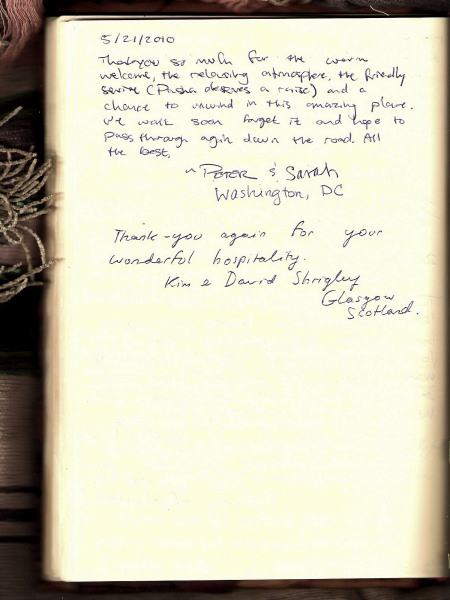 5/21/2010
Thankyou so much for the warm
welcome, the relaxing atmosphere, the friendly
service (Pasha deserves a raise) and a
chance to unwind in this amazing place.
We wont soon forget it and hope to
pass through again down the road. All
the best,
~ PETER & Sarah
Washington, DC
Thank-you again for your
wonderful hospitality.
Kim & David Shrigley
Glasgow
Scotland.